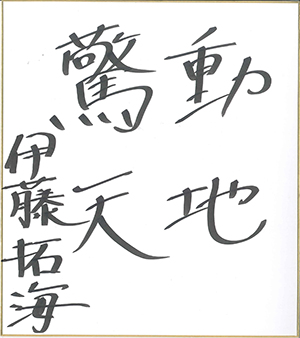 動地
驚天
伊藤拓海